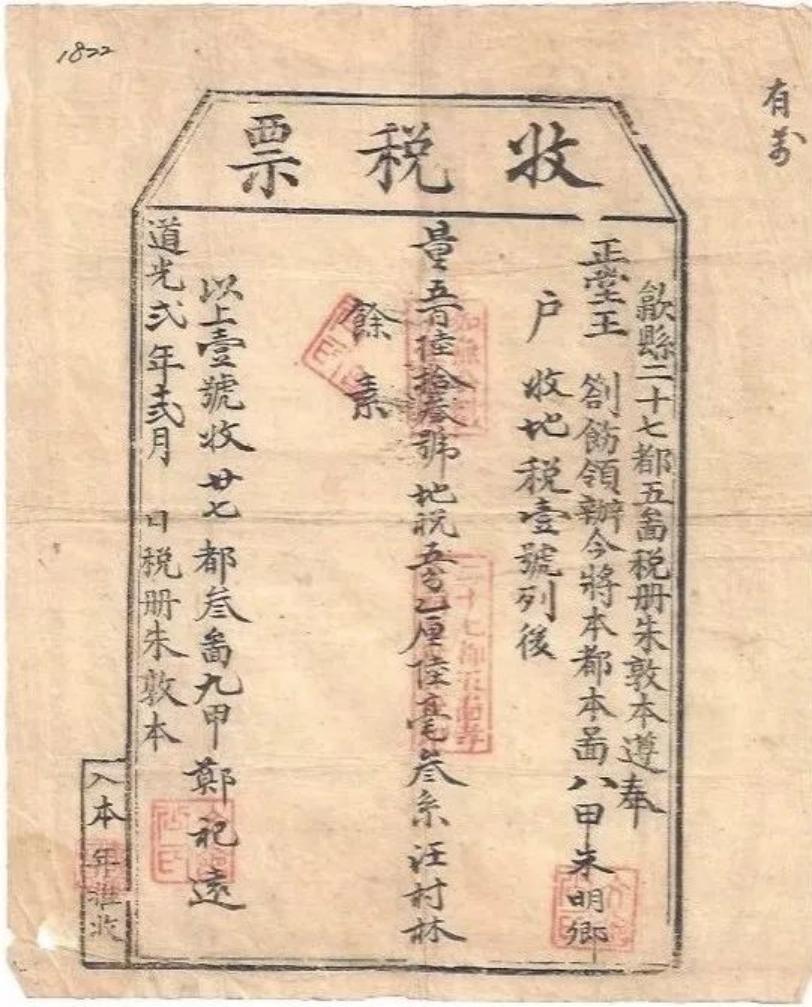 1822
有芳
收稅票
歙縣二十七都五啚税册朱敦本遵奉
正堂王 劄飭領辦今將本都本啚八甲朱明鄉
户 收地税壹號列後
量五百陸拾叁號地税五分乙厘陸毫叁系汪村林
餘素
以上壹號收廿七都叁啚九甲鄭祀遠
道光弍年弍月 日税册朱敦本
入本年推收
二十七都五啚